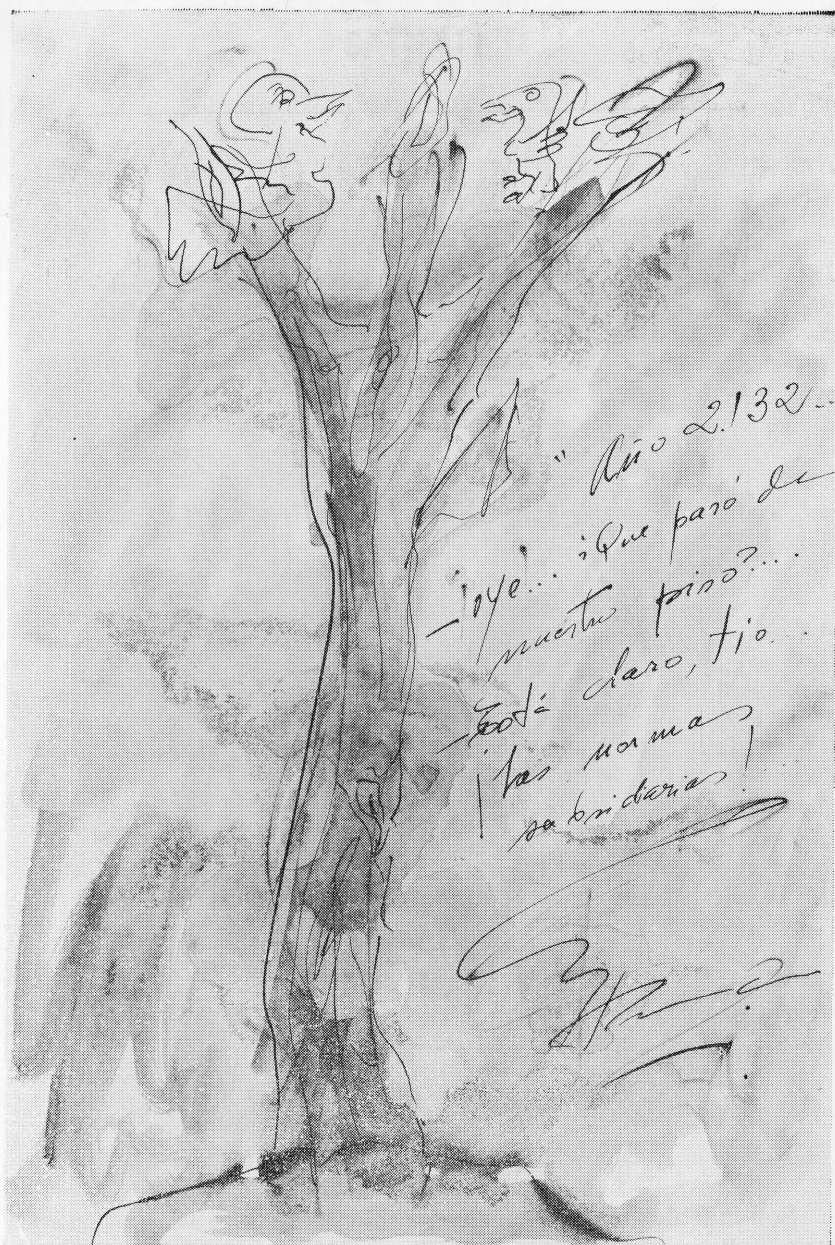 " Año 2.132...
- ¡oye!... ¿Que pasó de
nuestro piso?...
- Está claro, tío...
¡las normas
subsidiarias!